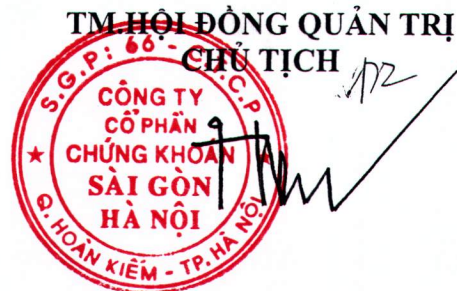 TM.HỘI ĐỒNG QUẢN TRỊ
CHỦ TỊCH
S.G.P: 66 -
C.P
CÔNG TY
CỔ PHẦN
CHỨNG KHOÁN
SÀI GÒN
HÀ NỘI
Q. HOÀN KIẾM - TP. HÀ NỘI